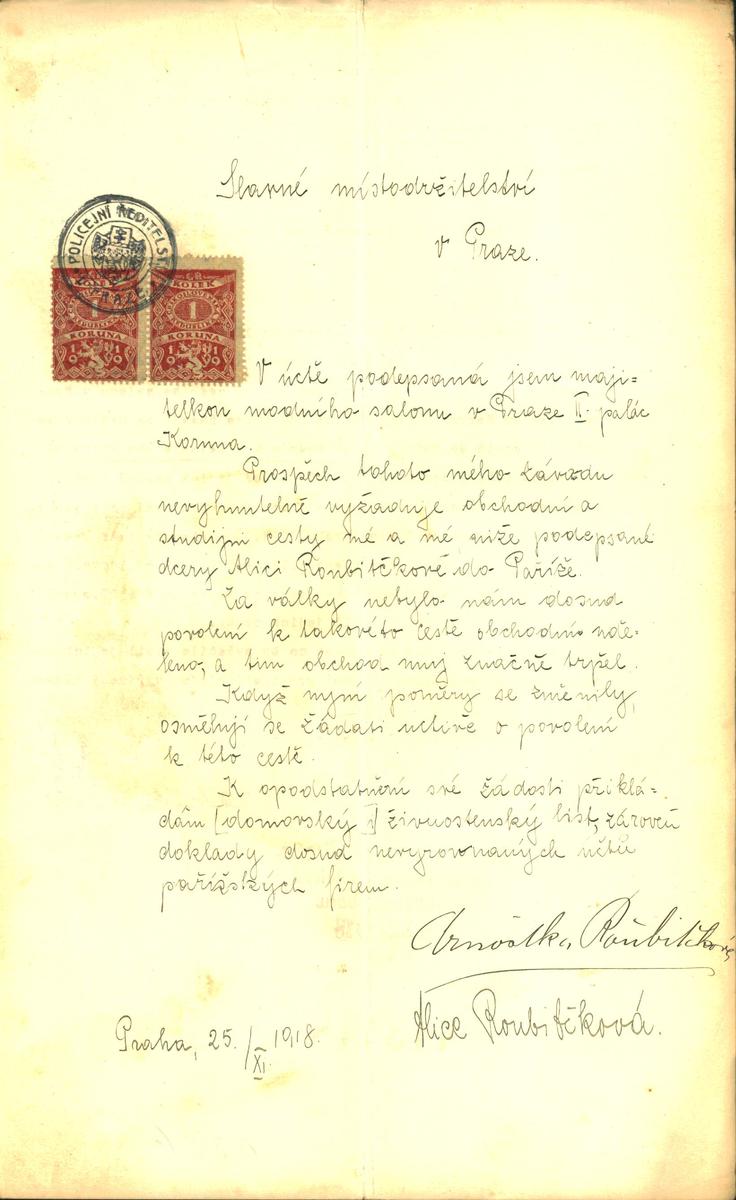 Slavné místodržitelství
v Praze.
POLICEJNÍ ŘEDITELSTVÍ
V PRAZE
KOLEK
1
KORUNA
1919
KOLEK
ČESKOSLOVENSKÁ
1
REPUBLIKA
KORUNA
1919
V úctě podepsaná jsem maji=
telkou modního salonu v Praze II. palác
Koruna.
Prospěch tohoto mého závodu
nevyhnutelně vyžaduje obchodní a
studijní cesty mé a mé níže podepsané
dcery Alici Roubíčkové do Paříže.
Za války nebylo nám dosud
povolení k takovéto cestě obchodní udě-
leno, a tím obchod muj značně trpěl.
Když nyní poměry se změnily,
osměluji se žádati uctivě o povolení
k této cestě.
K opodstatnění své žádosti přiklá-
dám [domovský i] živnostenský list, zároveň
doklady dosud nevyrovnaných účtů
pařížských firem.
Arnoštka Roubíčková
Alice Roubíčková.
Praha, 25./XI. 1918.